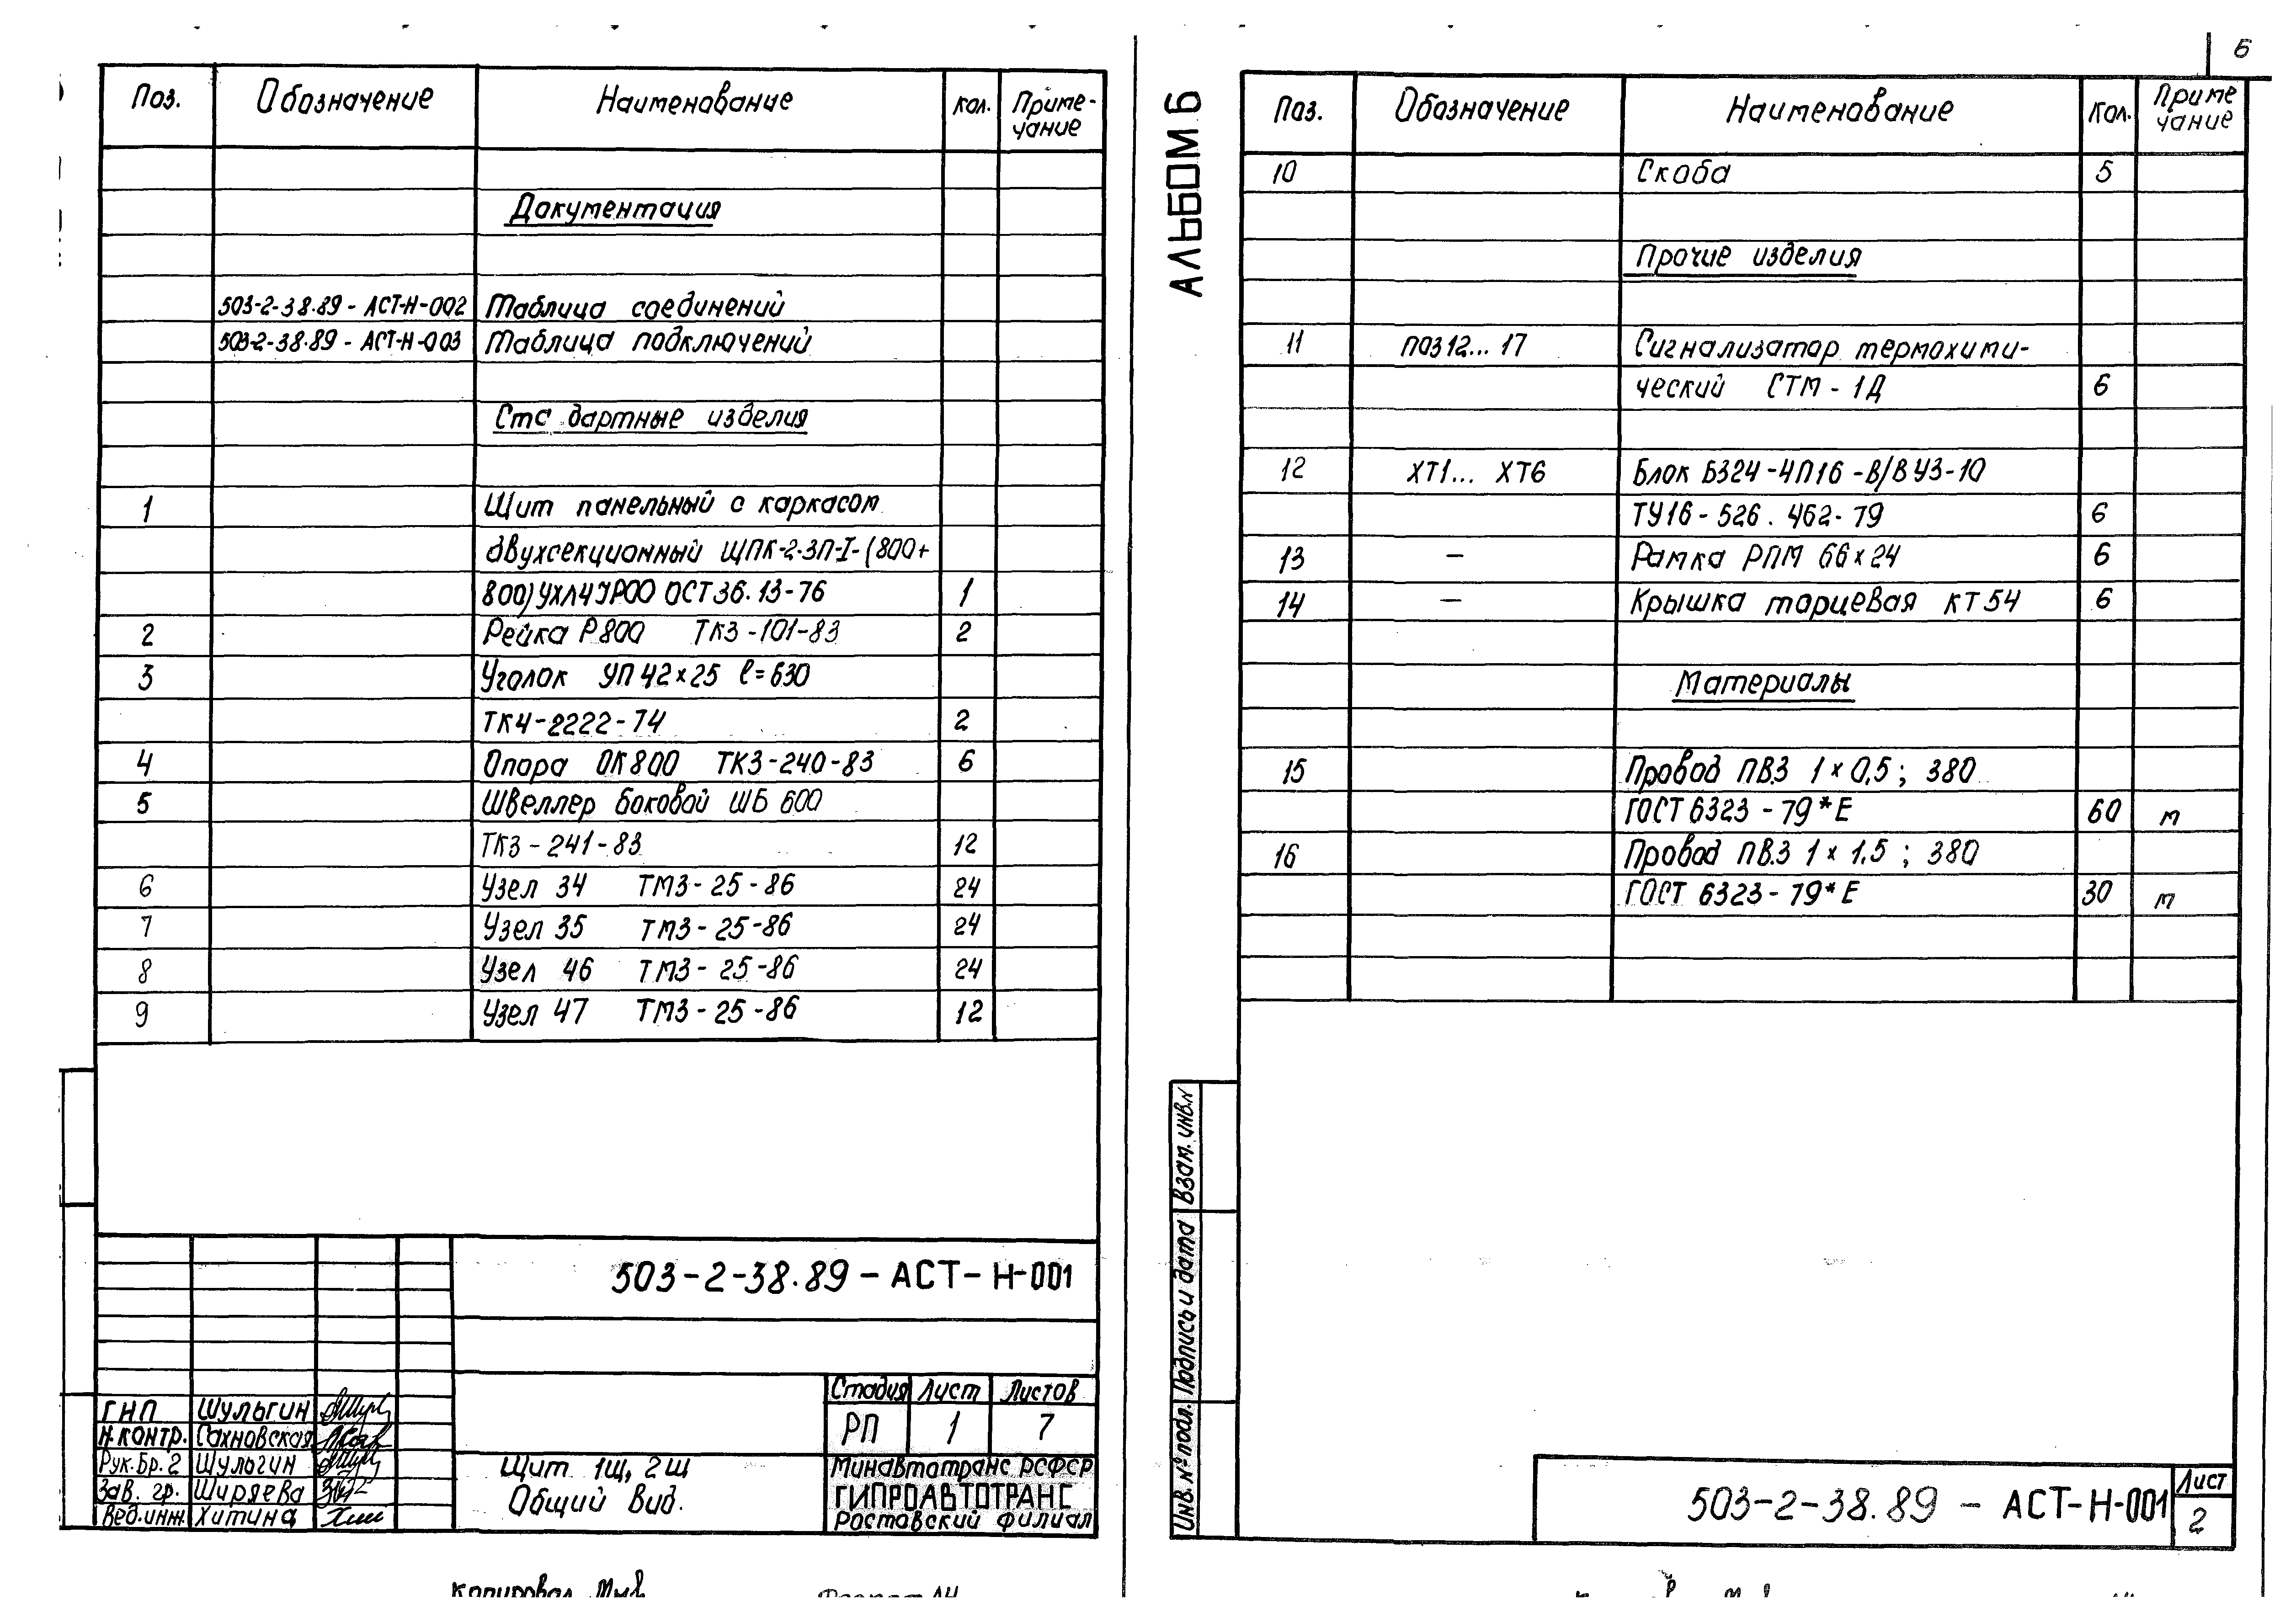 Поз. Обозначение Наименование Кол. Приме-
чание
Документация
503-2-38.89 - АСТ-Н-002 Таблица соединений
503-2-38.89 - АСТ-Н-003 Таблица подключений
Стс дартные изделия
1 Щит панельный с каркасом
двухсекционный ЩПК-2-ЗП-I-(800+
800)УХЛ4 IP00 ОСТ 36.13-76 1
2 Рейка Р800 ТК3-101-83 2
3 Уголок УП 42×25 ℓ=630
ТК4-2222-74 2
4 Опора ОК800 ТК3-240-83 6
5 Швеллер боковой ШБ 600
ТК3-241-83 12
6 Узел 34 ТМ3-25-86 24
7 Узел 35 ТМ3-25-86 24
8 Узел 46 ТМ3-25-86 24
9 Узел 47 ТМ3-25-86 12
503-2-38.89 - АСТ- Н-001
Стадия Лист Листов
РП 1 7
ГНП Шульгин
Н.контр. Сахновская
Рук.Бр.2 Шульгин
Зав. гр. Ширяева
Вед.инж. Хитина
Щит 1щ, 2щ
Общий вид.
Минавтотранс РСФСР
ГИПРОАВТОТРАНС
Ростовский филиал
Копировал
АЛЬБОМ 6
6
Поз. Обозначение Наименование Кол. Приме
чание
10 Скоба 5
Прочие изделия
11 поз12... 17 Сигнализатор термохими-
ческий СТМ - 1Д 6
12 ХТ1... ХТ6 Блок Б324-4П16-В/ВУ3-10
ТУ16-526.462-79 6
13 — Рамка РПМ 66×24 6
14 — Крышка торцевая КТ54 6
Материалы
15 Провод ПВ3 1×0,5; 380
ГОСТ 6323-79*Е 60 м
16 Провод ПВ3 1×1.5; 380
ГОСТ 6323-79*Е 30 м
Взам. инв.N
Подпись и дата
Инв. № подл.
503-2-38.89 - АСТ-Н-001
Лист
2